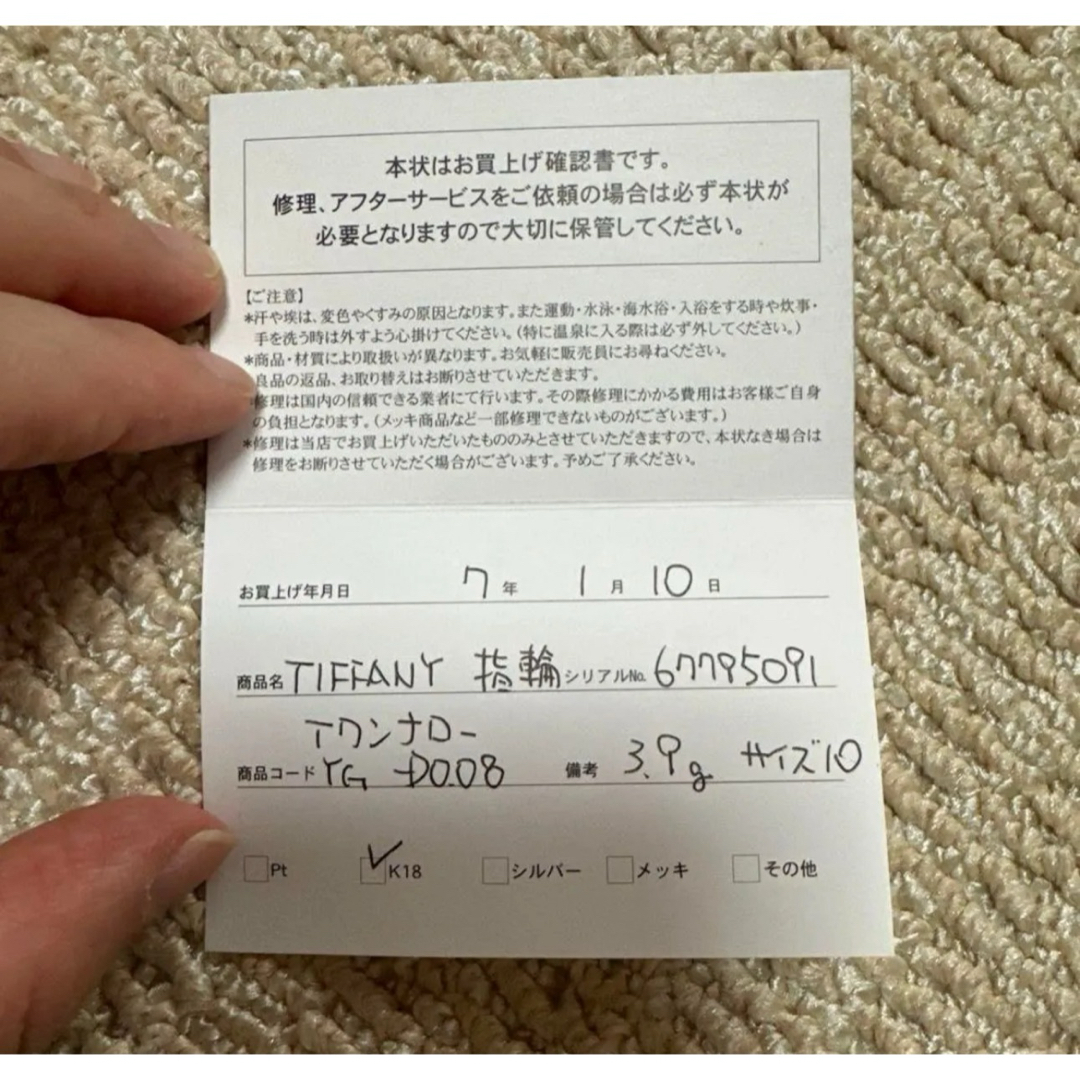 本状はお買上げ確認書です。
修理、アフターサービスをご依頼の場合は必ず本状が
必要となりますので大切に保管してください。
【ご注意】
*汗や埃は、変色やくすみの原因となります。また運動・水泳・海水浴・入浴をする時や炊事・
手を洗う時は外すよう心掛けてください。(特に温泉に入る際は必ず外してください。)
*商品・材質により取扱いが異なります。お気軽に販売員にお尋ねください。
良品の返品、お取り替えはお断りさせていただきます。
修理は国内の信頼できる業者にて行います。その際修理にかかる費用はお客様ご自身
の負担となります。(メッキ商品など一部修理できないものがございます。)
*修理は当店でお買上げいただいたもののみとさせていただきますので、本状なき場合は
修理をお断りさせていただく場合がございます。予めご了承ください。
お買上げ年月日 7年 1月 10日
商品名 TIFFANY 指輪 シリアルNo. 67795091
Tワンナロー
商品コード YG D0.08 備考 3.9g サイズ10
Pt ✓K18 シルバー メッキ その他